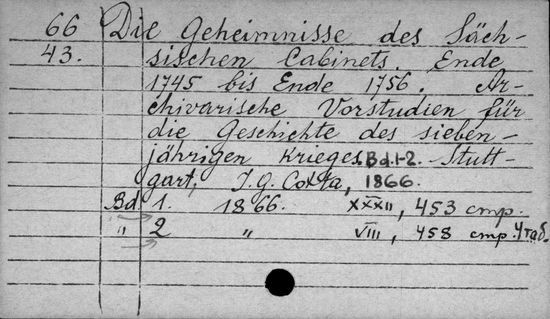 66 Die Geheimnisse des Säch-
43. sischen Cabinets. Ende
1745 bis Ende 1756. Ar-
chivarische Vorstudien für
die Geschichte des sieben-
jährigen Krieges. Bd. 1-2. Stutt-
gart, J. G. Cotta, 1866.
Bd. 1. 1866. XXXII, 453 стр.
" 2 " VIII, 458 стр. 4 таб.